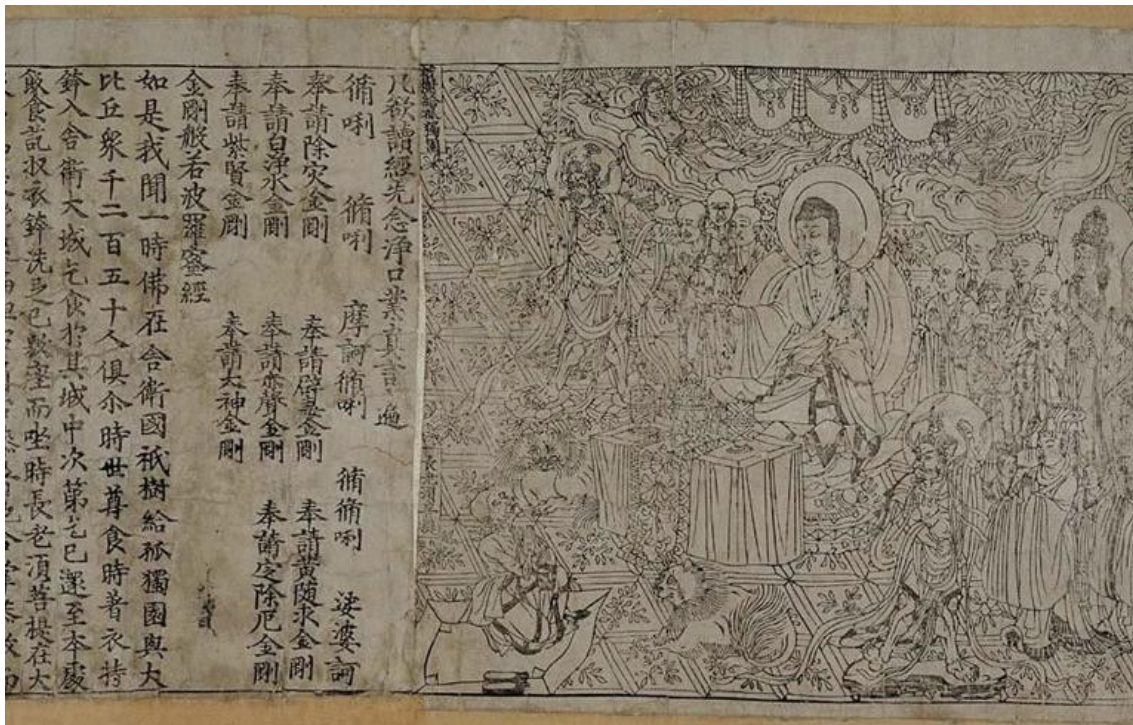 凡欲讀經先念淨口業真言遍
脩唎 脩唎 摩訶脩唎 脩脩唎 娑婆訶
奉請除灾金剛 奉請辟毒金剛 奉請黃隨求金剛
奉請白淨水金剛 奉請赤聲金剛 奉請定除厄金剛
奉請紫賢金剛 奉請大神金剛
金剛般若波羅蜜經
如是我聞一時佛在舍衛國祇樹給孤獨園與大
比丘眾千二百五十人俱尒時世尊食時著衣持
鉢入舍衛大城乞食於其城中次第乞已還至本處
飯食訖収衣鉢洗足已敷座而坐時長老須菩提在大